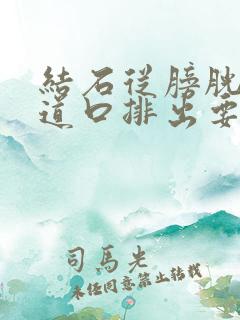 結石從膀胱
道口排出要
司馬光
未經同意禁止轉載